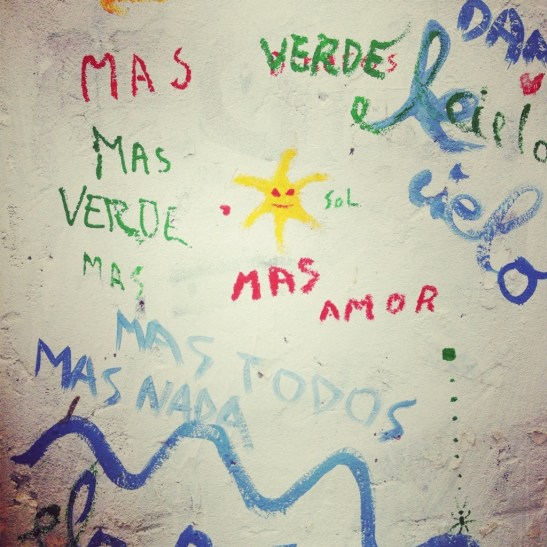 DAN
MAS
VERDE
el cielo
MAS
cielo
VERDE
SOL
MAS
MAS
AMOR
MAS TODOS
MAS NADA
el